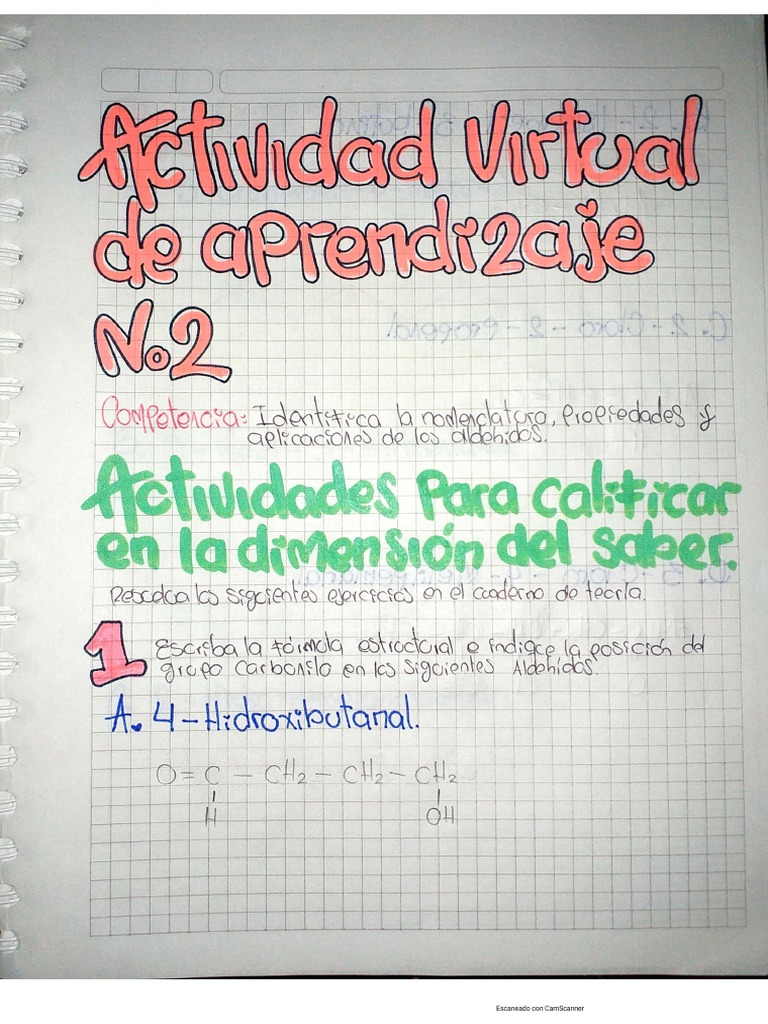 Actividad Virtual
de aprendizaje
No.2
Competencia: Identifica la nomenclatura, Propiedades y
aplicaciones de los aldehidos.
Actividades Para calificar
en la dimensión del saber.
Resuelva los siguientes ejercicios en el cuaderno de teoría.
1 Escriba la fórmula estructural e indique la posición del
grupo Carbonilo en los siguientes Aldehidos.
A. 4-Hidroxibutanal.
O = C - CH2 - CH2 - CH2
H OH
Escaneado con CamScanner